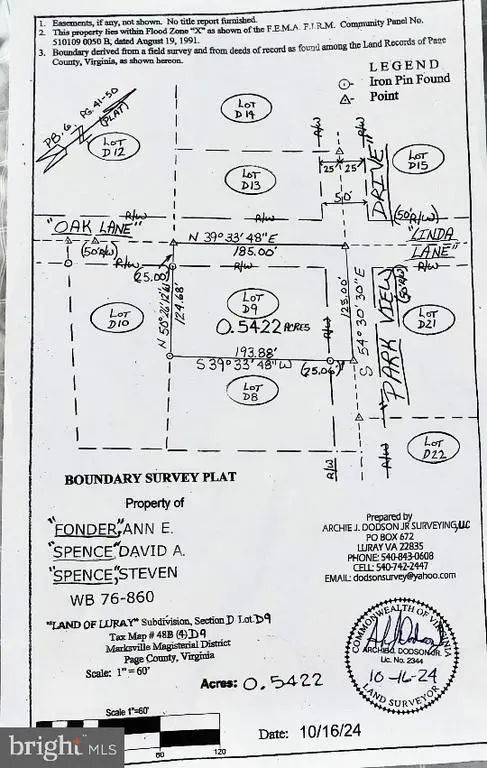 1. Easements, if any, not shown. No title report furnished.
2. This property lies within Flood Zone "X" as shown of the F.E.M.A. F.I.R.M. Community Panel No.
510109 0050 B, dated August 19, 1991.
3. Boundary derived from a field survey and from deeds of record as found among the Land Records of Page
County, Virginia, as shown hereon.
LEGEND
Iron Pin Found
Point
PB. 6 PG. 41-50
(PLAT)
LOT
D12
LOT
D14
LOT
D13
LOT
D15
R/W
R/W
25' 25'
50'
"OAK LANE"
(50'R/W)
R/W
R/W
R/W
R/W
N 39° 33' 48" E
185.00'
(25.00')
DRIVE"
(50'R/W)
"LINDA
LANE"
LOT
D10
LOT
D9
0.5422 ACRES
124.68'
R/W
125.00'
S 54° 30' 30" E
"PARK VIEW
(50'R/W)
LOT
D21
193.88'
S 39° 33' 48" W
(25.06')
LOT
D8
R/W
R/W
LOT
D22
BOUNDARY SURVEY PLAT
Property of
"FONDER," ANN E.
"SPENCE," DAVID A.
"SPENCE," STEVEN
WB 76-860
"LAND OF LURAY" Subdivision, Section D Lot D9
Tax Map # 48B (4) D9
Marksville Magisterial District
Page County, Virginia
Scale: 1" = 60'
Acres: 0.5422
Prepared by
ARCHIE J. DODSON JR SURVEYING, LLC
PO BOX 672
LURAY VA 22835
PHONE: 540-843-0608
CELL: 540-742-2447
EMAIL: dodsonsurvey@yahoo.com
COMMONWEALTH OF VIRGINIA
ARCHIE J. DODSON JR.
Lic. No. 2344
10-16-24
LAND SURVEYOR
Scale 1"=60'
60
120
Date: 10/16/24
bright MLS